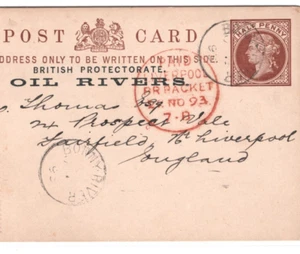 POST CARD
HALF PENNY
ADDRESS ONLY TO BE WRITTEN ON THIS SIDE.
BRITISH PROTECTORATE.
OIL RIVERS.
PAID
LIVERPOOL
BR PACKET
NO 93
Thomas Esq
24 Prospect Vale
Fairfield, Liverpool
England
BONNY RIVER